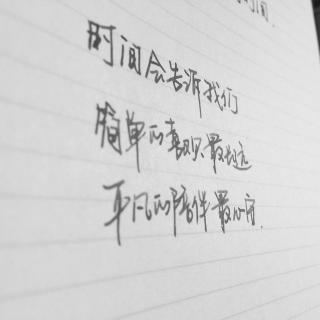 时间会告诉我们
简单的喜欢最长远
平凡的陪伴最心安.